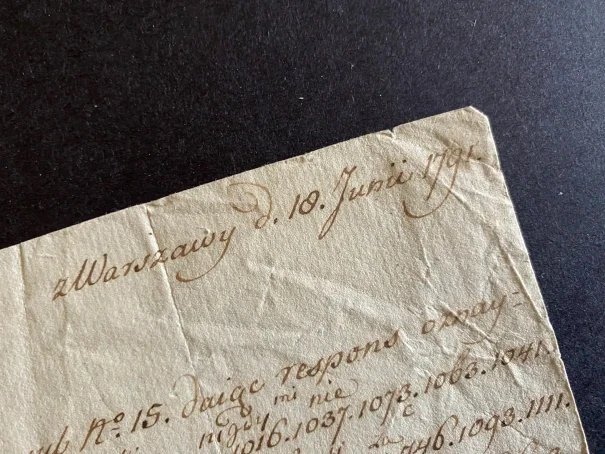 z Warszawy d. 18. Junii 1791.
sub No. 15. daiąc respons oznay-
nigdy mi nie
1016. 1037. 1073. 1063. 1041.
746. 1093. 1111.